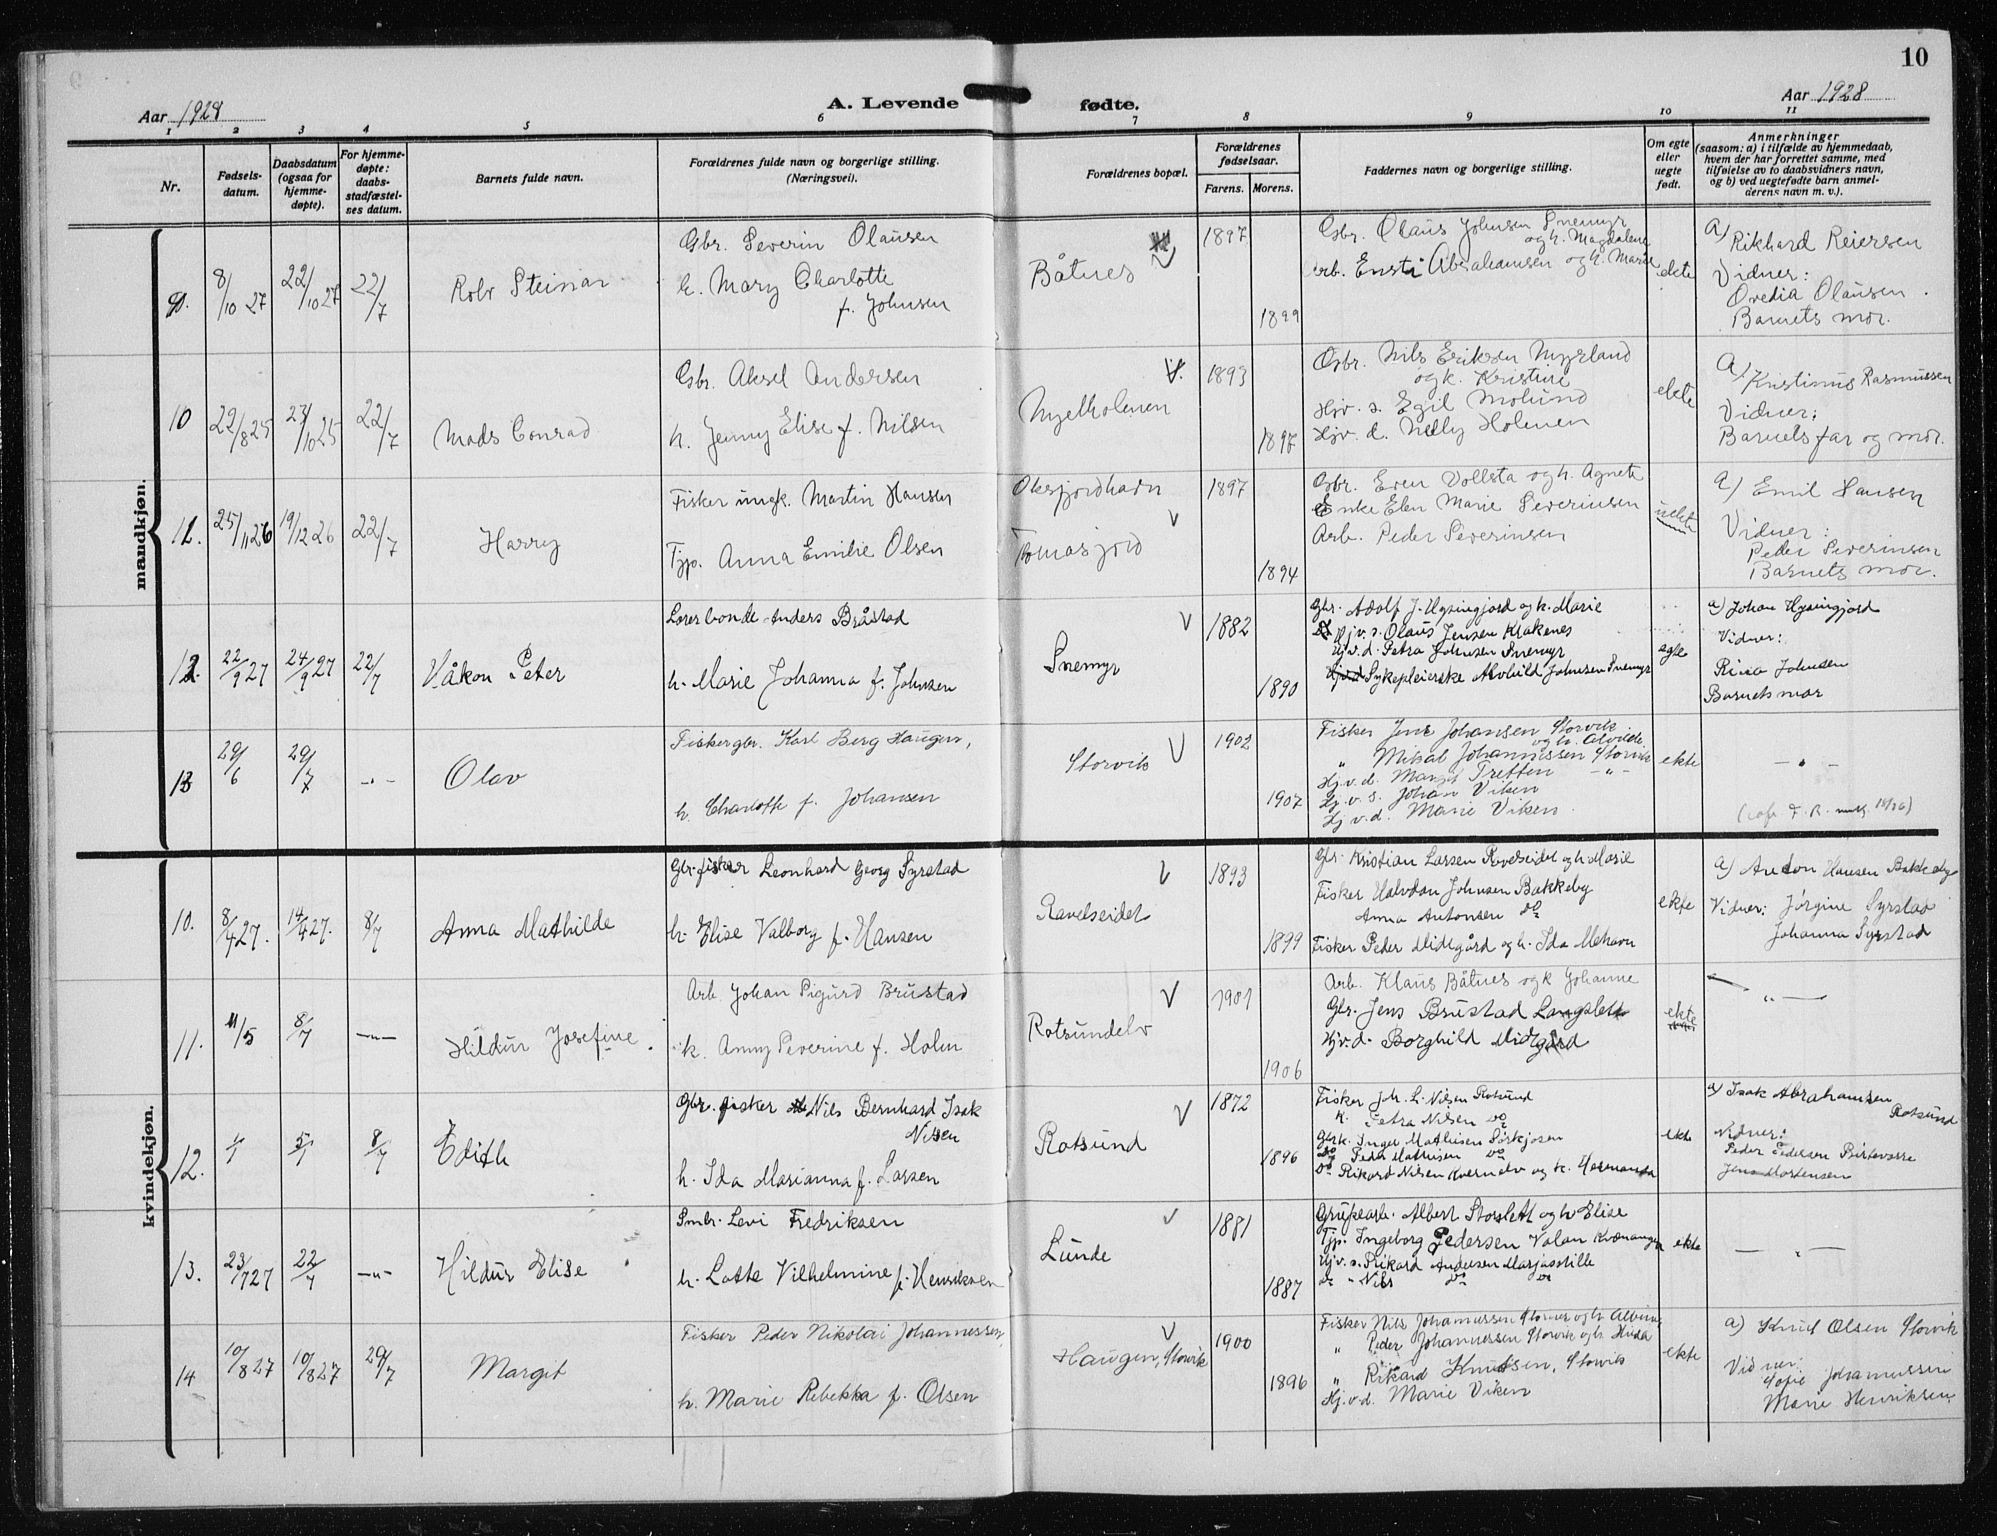 10
Aar 1928
A. Levende fødte.
Aar 1928
1 2 3 4 5 6 7 8 9 10 11
Nr.
Fødsels-
datum.
Daabsdatum
(ogsaa for
hjemme-
døpte).
For hjemme-
døpte:
daabs-
stadfæstel-
ses datum.
Barnets fulde navn.
Forældrenes fulde navn og borgerlige stilling.
(Næringsvei).
Forældrenes bopæl.
Forældrenes
fødselsaar.
Farens. Morens.
Faddernes navn og borgerlige stilling.
Om egte
eller
uegte
født.
Anmerkninger
(saasom: a) i tilfælde av hjemmedaab,
hvem der har forrettet samme, med
tilføielse av to daabsvidners navn,
og b) ved uegtefødte barn anmel-
derens navn m. v.).
mandkjøn.
9. 8/10 27 22/10 27 22/7
Rolv Steinar
Gbr. Severin Olausen
h. Mary Charlotte
f. Johnsen
Båtnes
1897
1899
Gbr. Olaus Johnsen Snemyr
og h. Magdalene
Arb. Abrahamsen og h. Marie
ekte
a) Rikhard Reiersen
Vidner:
Ovedia Olausen.
Barnets mor.
10 22/8 25 23/10 25 22/7
Mads Conrad
Gbr. Aksel Andersen
h. Jenny Elise f. Nilsen
1893
1897
Gbr. Nils Eriksen Myrland
og k. Kristine
Hjv. s. Egil Molund
Hjv. d. Nelly Holmen
ekte
a) Kristinus Rasmussen
Vidner:
Barnets far og mor.
11. 25/11 26 19/12 26 22/7
Harry
Fisker ungk. Martin Hansen
Tjp. Anna Emilie Olsen
Oksfjordhavn
Tomasjord
1897
1894
Gbr. Even Vollsta og h. Agnete
Enke Elen Marie Severinsen
Arb. Peder Severinsen
uekte
a) Emil Hansen
Vidner:
Peder Severinsen
Barnets mor.
12. 22/9 27 24/9 27 22/7
Håkon Peter
Anders Bråstad
h. Marie Johanna f. Johnsen
Snemyr
1882
1890
Gbr. Adolf J. Hysingjord og k. Marie
Hjv. s. Olaus Jensen Klakenes
Hjv. d. Petra Johnsen Snemyr
Sykepleierske Alvhild Johnsen Snemyr
egte
a) Johan Hysingjord
Vidner:
Johnsen
Barnets mor
13 29/6 29/7 - " -
Olav
Fisker gbr. Karl Berg Haugen,
h. Charlotte f. Johansen
Storvik
1902
1907
Fisker Jens Johansen Storvik
og h. Alvilde
" Mikal Johannessen Storvik
Hj. v. d. Margit Tretten - " -
Hj. v. s. Johan Viken
Hj. v. d. Marie Viken
ekte
- " -
kvindekjøn.
10. 8/4 27. 14/4 27. 8/7
Anna Mathilde
Gbr. fisker Leonhard Georg Syrstad
h. Elise Valborg f. Hansen
Ravelseidet
1893
1899
Gbr. Kristian Larsen Ravelseidet og h Marie
Fisker Halvdan Johnsen Bakkeby
Anna Antonsen do
Fisker Peder Midtgård og h. Ida
ekte
a) Anton Hansen Bakkeby
Vidner: Jørgine Syrstad
Johanna Syrstad
11. 11/5 8/7 - " -
Hildur Josefine.
Arb. Johan Sigurd Brustad
k. Anny Severine f. Holm
Rotsundelv
1901
1906
Arb. Klaus Båtnes og k Johanne
Gbr. Jens Brustad Langslett
Hjv. d. Borghild Midtgård
ekte
- " -
12. 1/1 5/1 8/7
Edith
Gbr. fisker Nils Bernhard Isak
Nilsen
h. Ida Marianna f. Larsen
Rotsund
1872
1896
Fisker Joh. L. Nilsen Rotsund
k. Petra Nilsen do
Inger Mathisen Sørkjosen
do Peder Mathisen do
do Rikard Nilsen Kvernelv og k.
ekte
a) Isak Abrahamsen
Rotsund
Vidner:
Peder Pedersen Birtavarre
Jens Mortensen
13. 23/7 27 22/7 - " -
Hildur Elise
Smbr. Levi Fredriksen
h. Lotte Vilhelmine f. Henriksen
Lunde
1881
1887
Grubearb. Albert Storslett og h Elise
Tjp. Ingeborg Pedersen Valan Kvænangen
Hjv. s. Rikard Andersen Marjasstille
do " Nils do do
ekte
- " -
14 10/8 27 10/8 27 29/7
Margit
Fisker Peder Nikolai Johannessen
h. Marie Rebekka f. Olsen
Haugen, Storvik
1900
1896
Fisker Nils Johannessen Storvik og h Albine
" Peder Johannessen Storvik og h. Hilda
" Rikard Knutsen, Storvik
Hj. v. d. Marie Viken
ekte
a) Knut Olsen Storvik
Vidner:
Sofie Johannessen
Marie Henriksen.